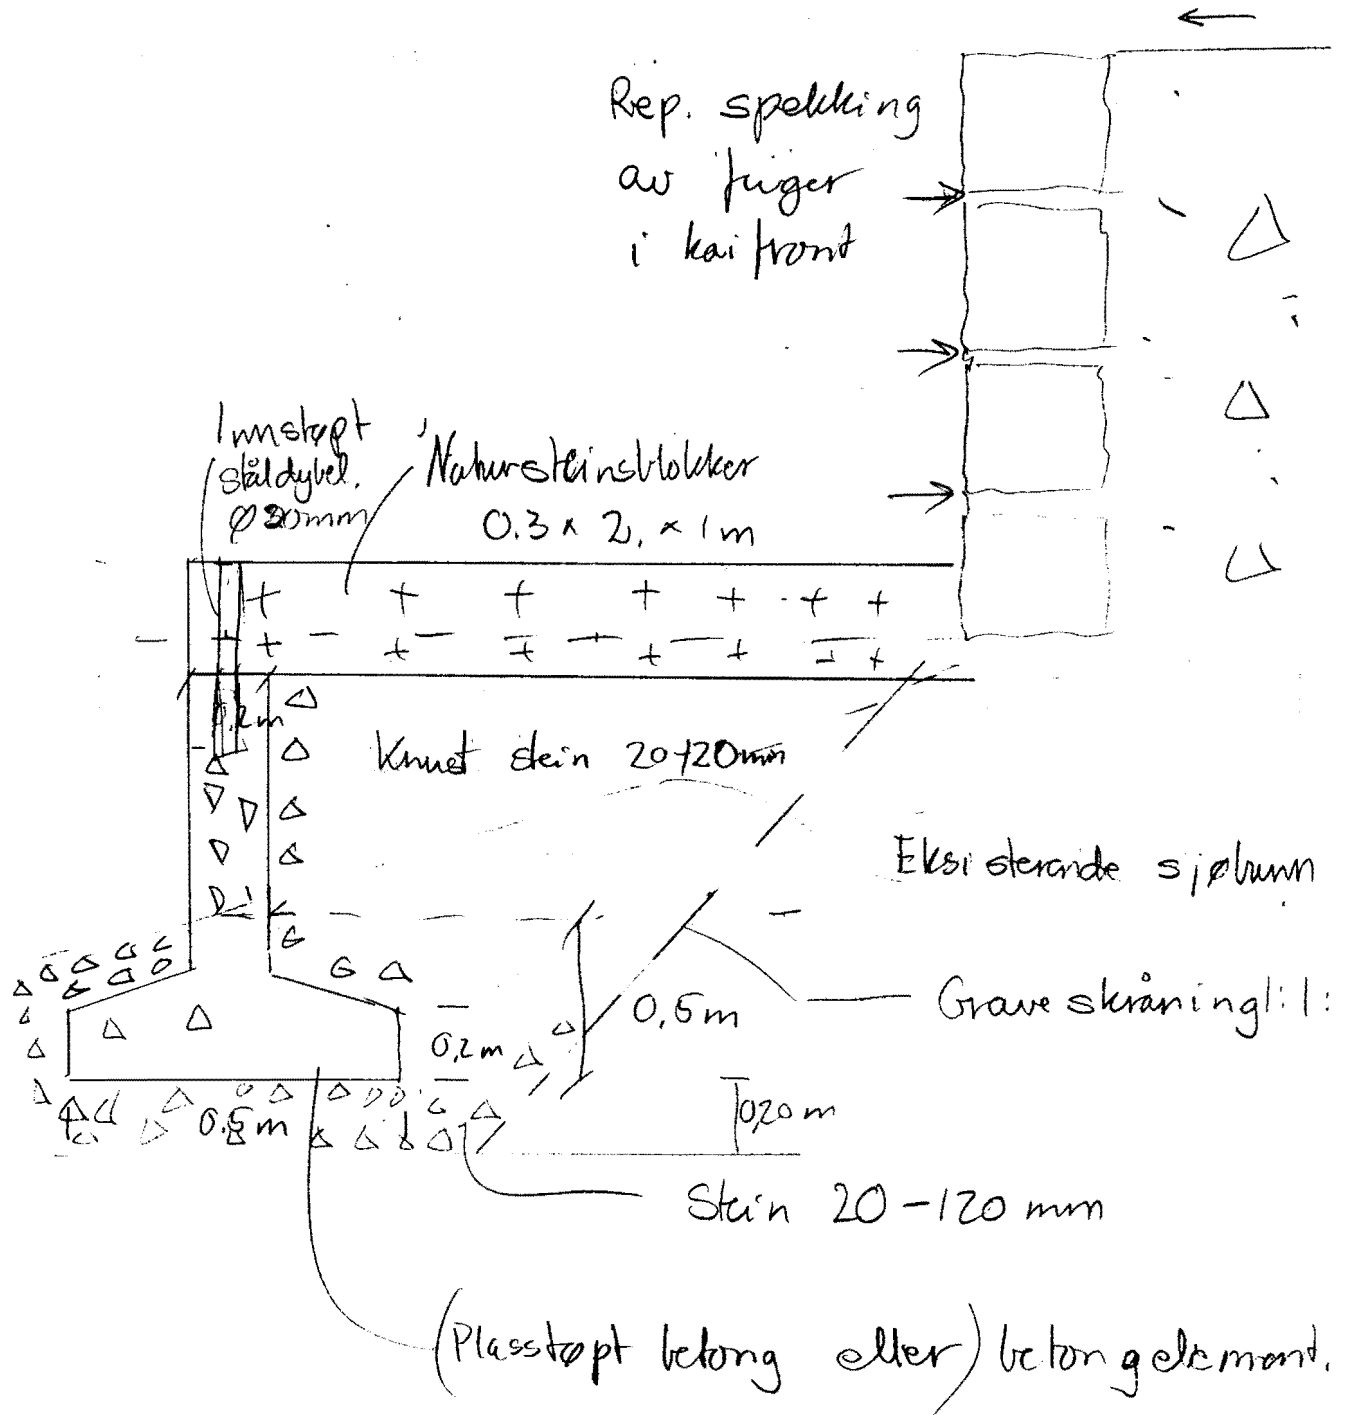 Rep. spekking
av fuger
i kaifront
Innstøpt
ståldybel.
Ø20mm
Natursteinsblokker
0.3 x 2. x 1m
0,2m
Knust stein 20-120mm
Eksisterande sjøbunn
Grave skråning 1:1:
0,5m
0,2m
0.5m
0,20m
Stein 20-120 mm
(Plasstøpt betong eller) betongelement.